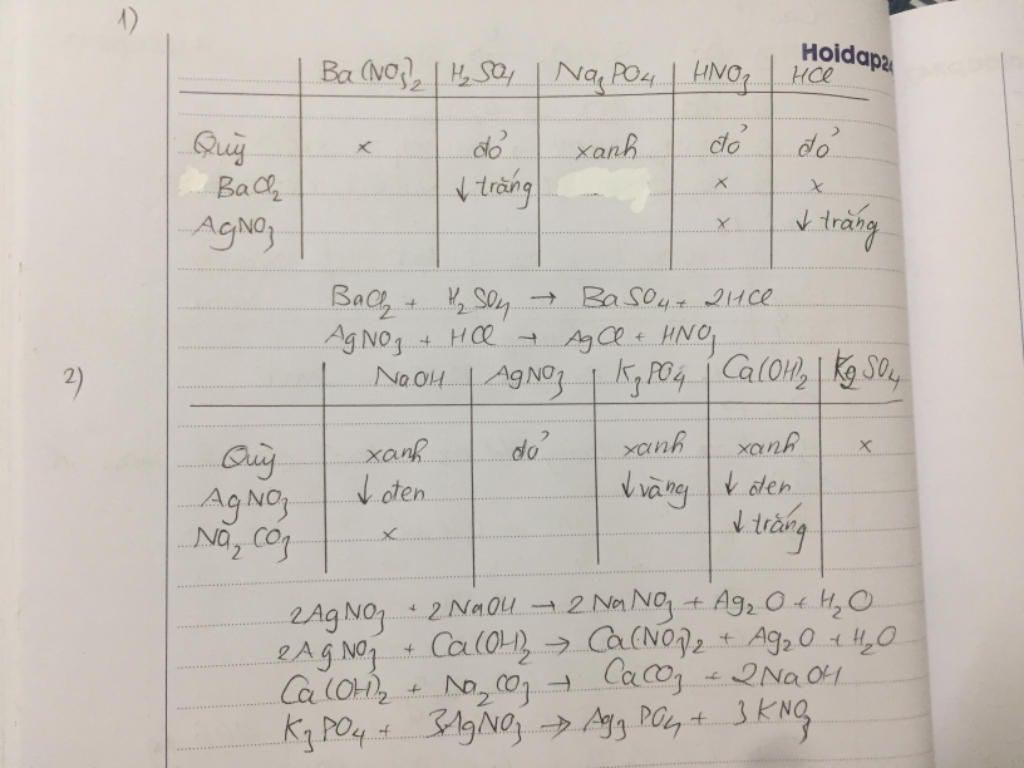 1)
Hoidap24
Ba(NO3)2 H2SO4 Na3PO4 HNO3 HCl
Quỳ x đỏ xanh đỏ đỏ
BaCl2 ↓ trắng x x
AgNO3 x ↓ trắng
BaCl2 + H2SO4 → BaSO4 + 2HCl
AgNO3 + HCl → AgCl + HNO3
2)
NaOH AgNO3 K3PO4 Ca(OH)2 SO4
Quỳ xanh đỏ xanh xanh x
AgNO3 ↓ đen ↓ vàng ↓ đen
Na2CO3 x ↓ trắng
2AgNO3 + 2NaOH → 2NaNO3 + Ag2O + H2O
2AgNO3 + Ca(OH)2 → Ca(NO3)2 + Ag2O + H2O
Ca(OH)2 + Na2CO3 → CaCO3 + 2NaOH
K3PO4 + 3AgNO3 → Ag3PO4 + 3KNO3